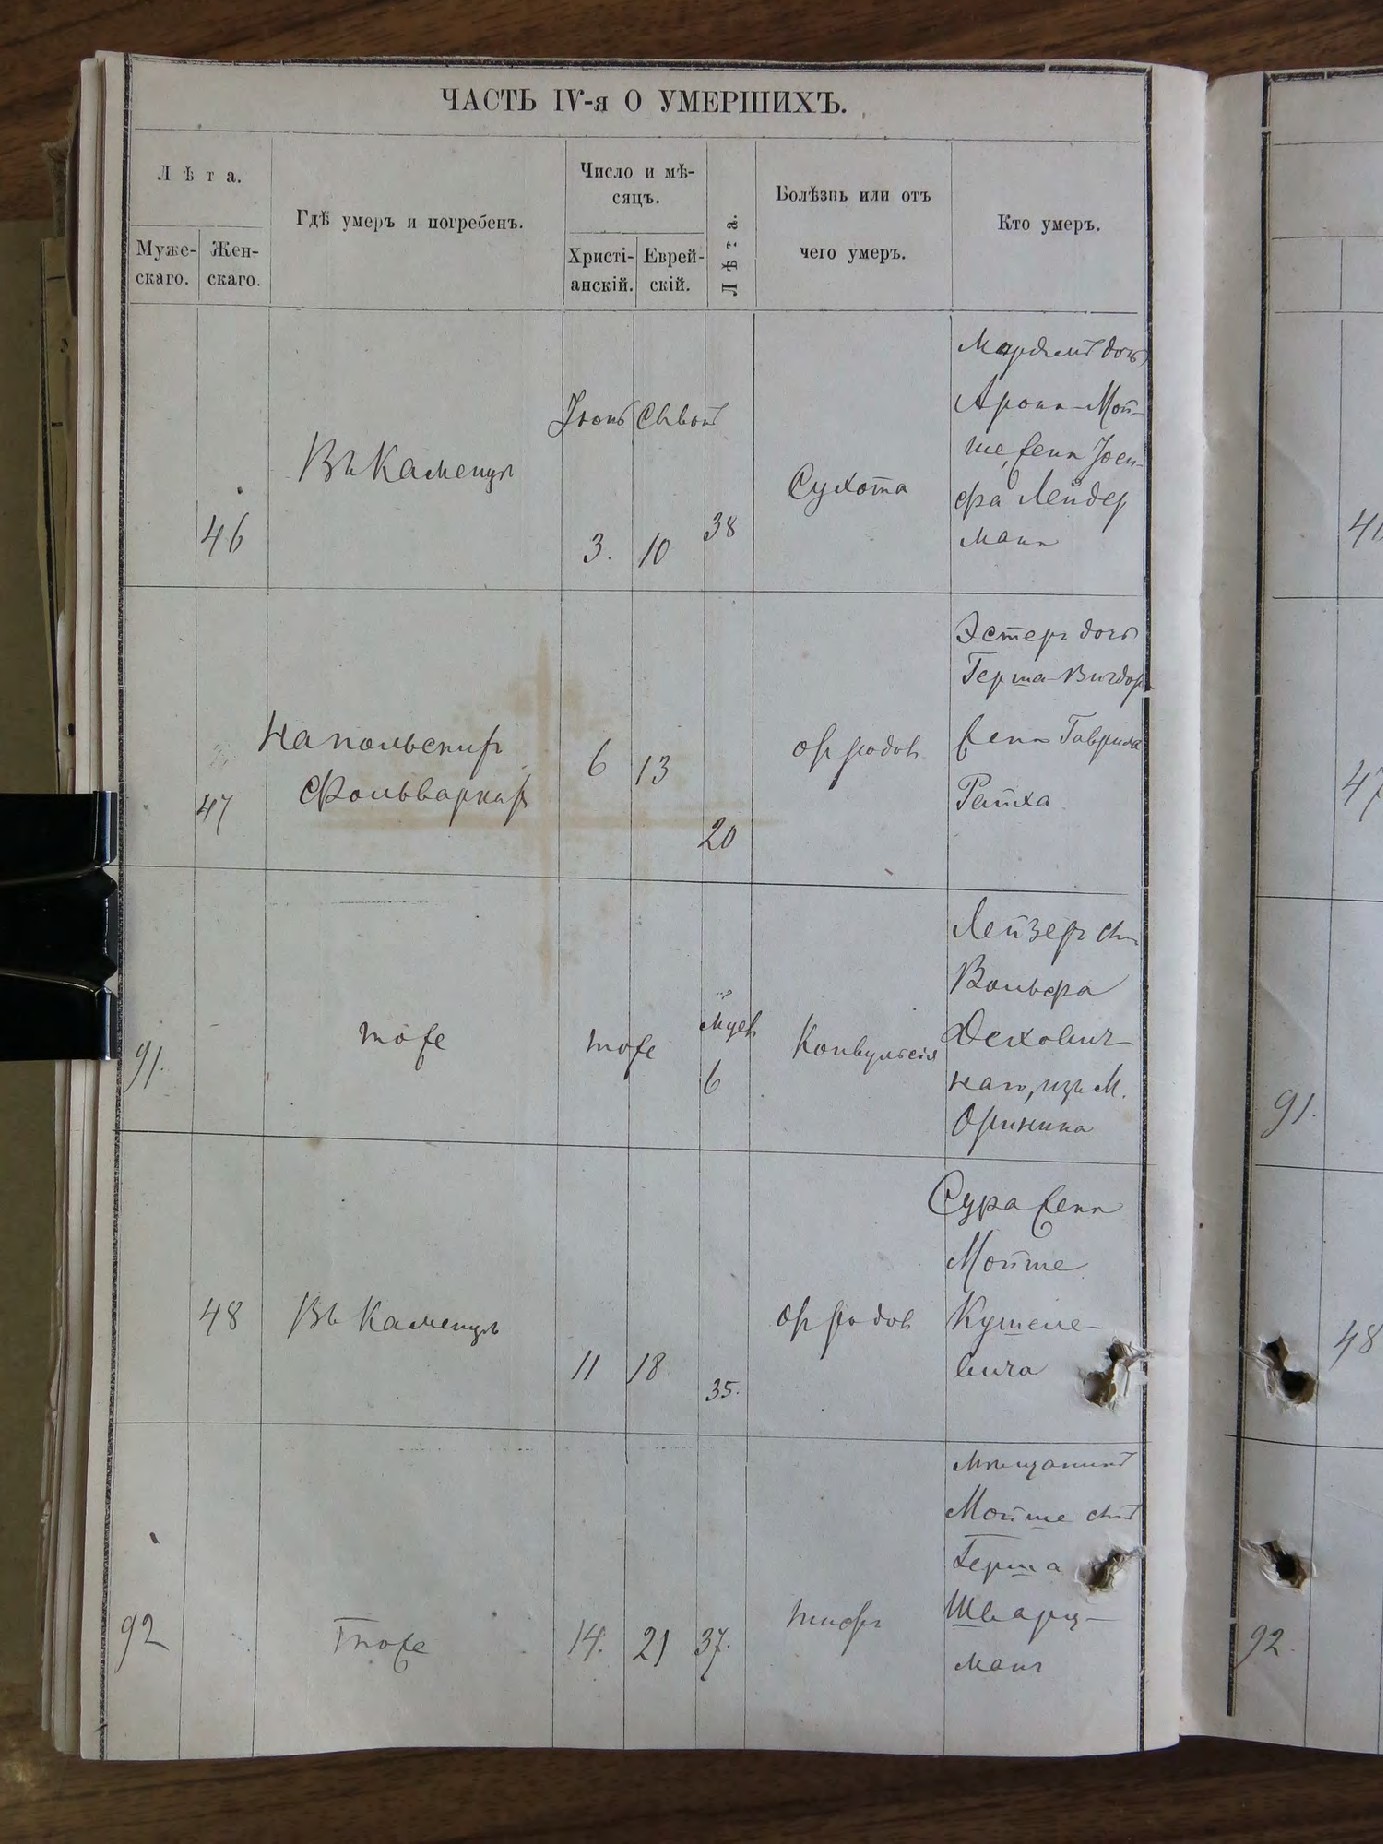 ЧАСТЬ IV-я О УМЕРШИХЪ.
Лѣта.
Муже-
скаго.
Жен-
скаго.
Гдѣ умеръ и погребенъ.
Число и мѣ-
сяцъ.
Христі-
анскій.
Еврей-
скій.
Лѣта.
Болѣзнь или отъ
чего умеръ.
Кто умеръ.
46
Въ Каменцѣ
3.
10
38
Сухота
дочь
Арона-Мой-
ше, жена Іоси-
фа Лейдер
манъ
46
47
На польскихъ
Фольваркахъ
6
13
20
отъ родовъ
Эстеръ дочь
Герша-Вигдора
жена Гаврила
Райха
47
91.
тоже
тоже
6
Конвульсія
Лейзеръ сынъ
Вольфа
наго, изъ М.
Оринина
91.
48
Въ Каменцѣ
11
18
35.
отъ родовъ
Сура жена
Мойше
Кушеле-
вича
48
92
Тоже
14.
21
37.
тифъ
Мѣщанинъ
Мойше сынъ
Герша
Шварц-
манъ
92.